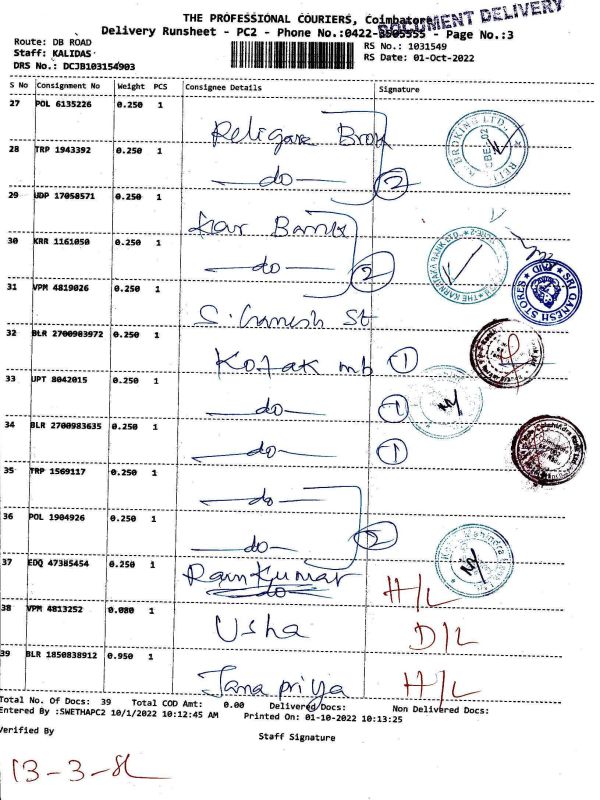 THE PROFESSIONAL COURIERS, Coimbatore
DOCUMENT DELIVERY
Delivery Runsheet - PC2 - Phone No.:0422-3505555 - Page No.:3
Route: DB ROAD
RS No.: 1031549
Staff: KALIDAS
RS Date: 01-Oct-2022
DRS No.: DCJB103154903
S No Consignment No Weight PCS Consignee Details Signature
27 POL 6135226 0.250 1
Religare Brok
28 TRP 1943392 0.250 1
do 2
29 UDP 17058571 0.250 1
Kar Bank
30 KRR 1161050 0.250 1
do 2
31 VPM 4819026 0.250 1
S. Ganesh St
32 BLR 2700983972 0.250 1
Kotak mb 1
33 UPT 8042015 0.250 1
do 1
34 BLR 2700983635 0.250 1
do 1
35 TRP 1569117 0.250 1
do
36 POL 1904926 0.250 1
do 2
37 EDQ 47385454 0.250 1
Ramkumar H/L
do
38 VPM 4813252 0.080 1
Usha D/L
39 BLR 1850838912 0.950 1
Jana priya H/L
BROKING LTD.
THE KARNATAKA BANK LTD.
SRI GANESH STORES
Total No. Of Docs: 39 Total COD Amt: 0.00 Delivered Docs: Non Delivered Docs:
Entered By :SWETHAPC2 10/1/2022 10:12:45 AM Printed On: 01-10-2022 10:13:25
Verified By
Staff Signature